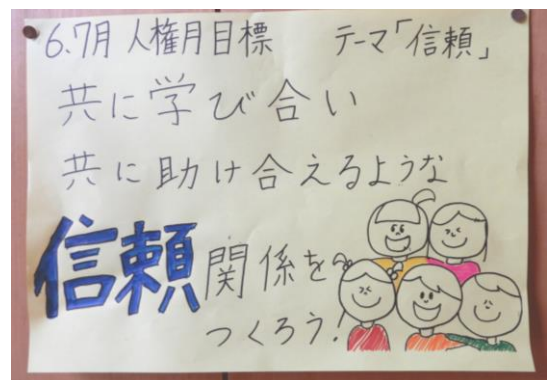 6.7月 人権月目標　テーマ「信頼」
共に学び合い
共に助け合えるような
信頼関係を
つくろう!